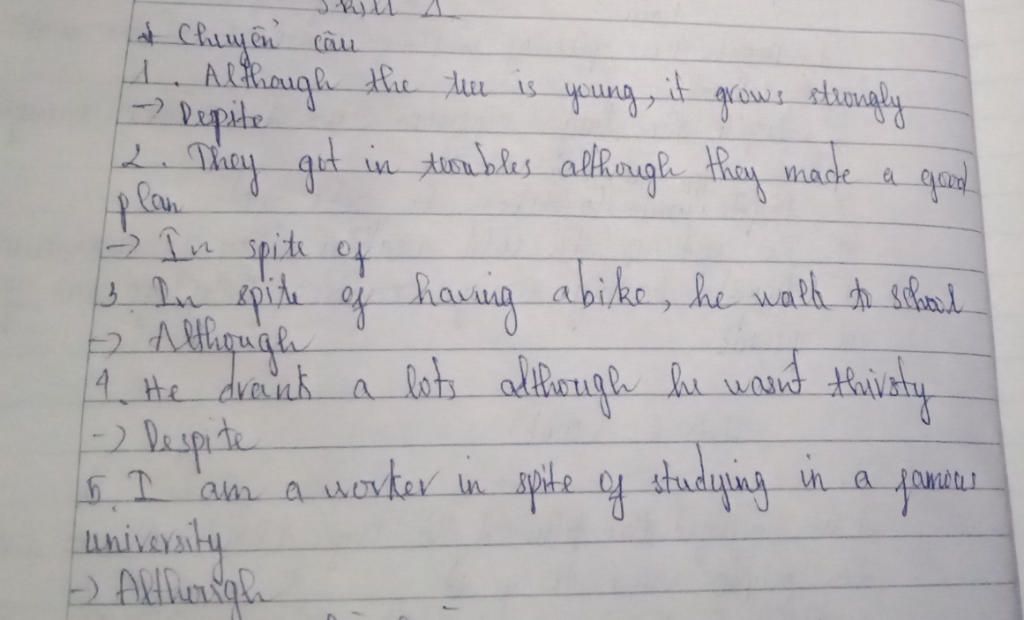 Skill 1
* Chuyển câu
1. Although the tree is young, it grows strongly
-> Depite
2. They got in troubles although they made a good
plan
-> In spite of
3. In spite of having a bike, he walk to school
-> Although
4. He drank a lots although he wasn't thirsty
-> Despite
5. I am a worker in spite of studying in a famous
university
-> Although